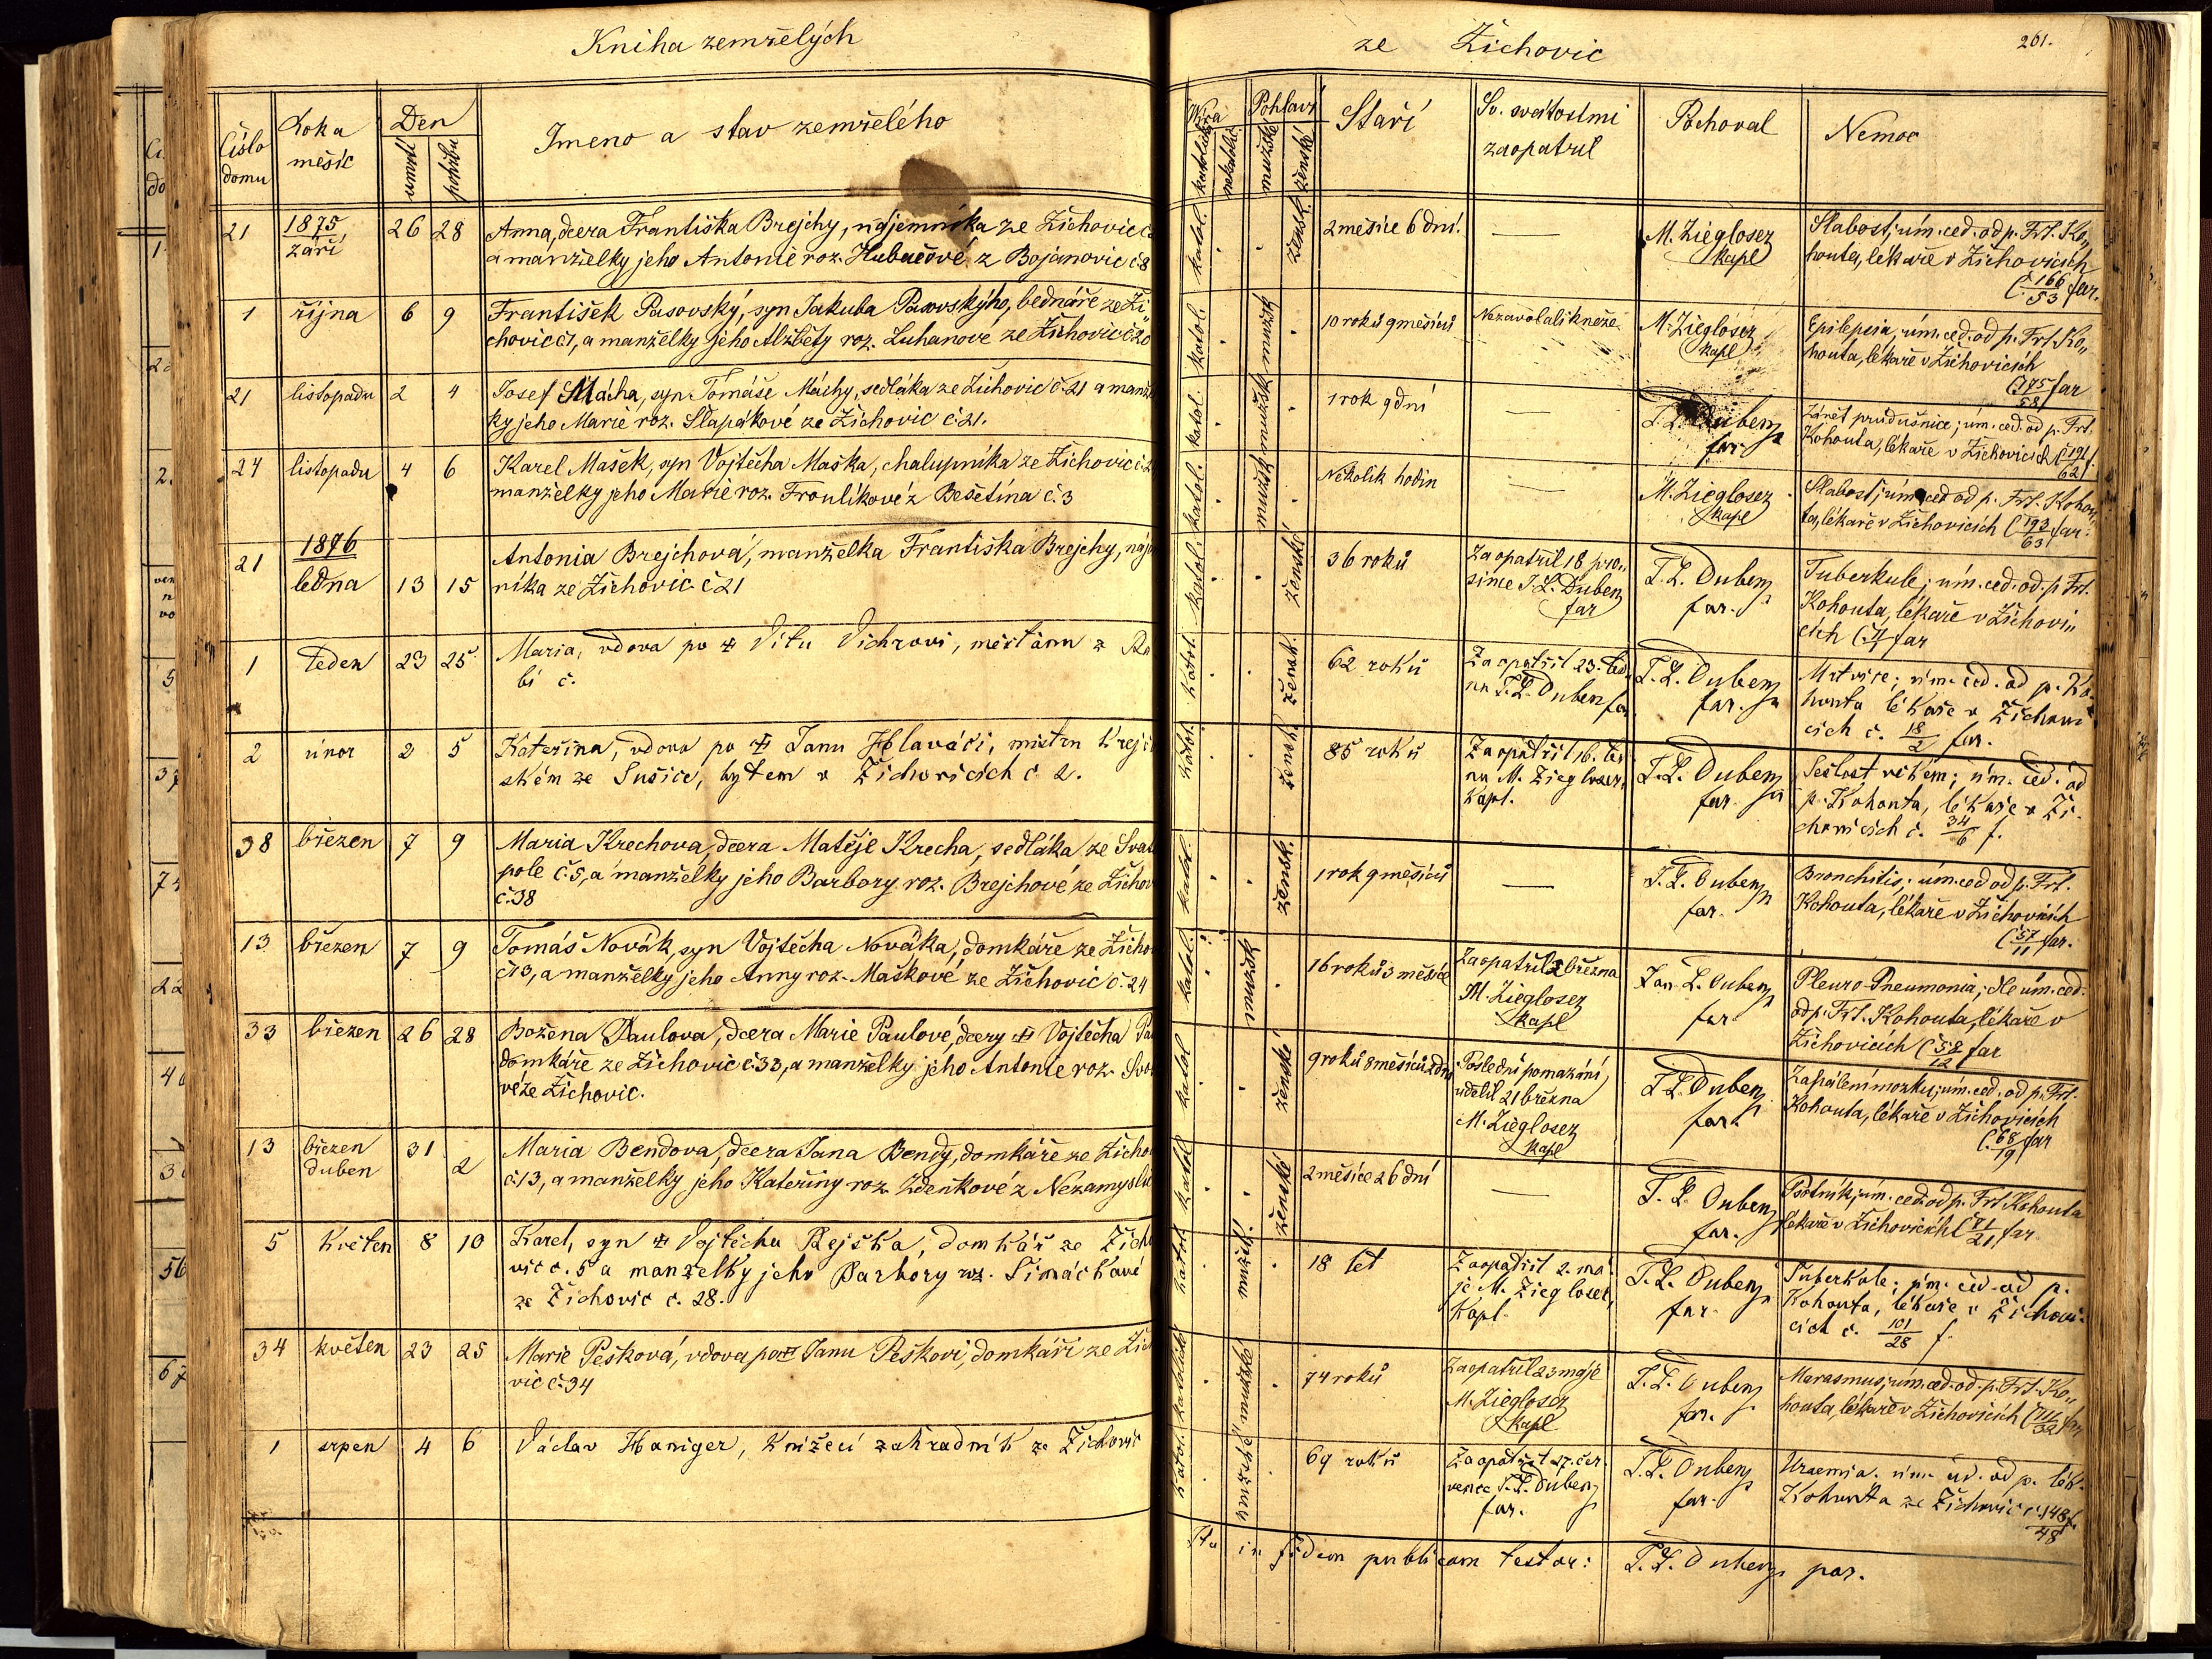 Kniha zemřelých
ze Žichovic
261.
Číslo domu
Roku měsíc
Den
úmrtí
pohřbu
Jmeno a stav zemřelého
Víra
katolická
nekatol.
Pohlaví
mužské
ženské
Staří
Sv. svátostmi
zaopatřil
Pochoval
Nemoc
21 1875 září 26 28
Anna, dcera Františka Brejchy, nájemníka ze Žichovic
a manželky jeho Antonie roz. Hubačové z Bojanovic č 8
katol. žensk. 2 měsíce 6 dní. —
M. Ziegloser
kapl
Slabost; úm. ced. od p. Frt. Ko„
houta, lékaře v Žichovicích
(č 166/53 far.
1 října 6 9
František Pasovský, syn Jakuba Pasovskýho, bednáře ze Ži„
chovic č 1, a manželky jeho Alžběty roz. Luhanove ze Žichovic č 20
katol. mužsk 10 roků 9 měsíců
Nezavolali kněze
M. Ziegloser
kapl
Epilepsia; úm. ced. od p. Frt. Ko„
houta, lékaře v Žichovicích
(č 175/58 far
21 listopadu 2 4
Josef Mácha, syn Tomáše Máchy, sedláka ze Žichovic č. 21 a manžel
ky jeho Marie roz. Slapákové ze Žichovic č 21.
katol. mužsk 1 rok 9 dní —
J. L. Dubenz
far.
Zánět průdušnice; úm. ced. od p. Frt.
Kohouta, lékaře v Žichovicích (č 191/62 f.
24 listopadu 4 6
Karel Mašek, syn Vojtěcha Maška, chalupníka ze Žichovic č. 2
manželky jeho Marie roz. Froulíkové z Bešetína č. 3
katol. mužsk Několik hodin —
M. Ziegloser
kapl
Slabost; úm. ced od p. Frt. Kohou„
ta, lékaře v Žichovicích (č 193/63 far.
21 1876 ledna 13 15
Antonia Brejchová, manželka Františka Brejchy, náje
níka ze Žichovic č 21
katol. ženské 36 roků
Zaopatřil 18 pro„
since J. L. Dubenz
far
J. L. Dubenz
far.
Tuberkule; úm. ced. od. p Frt.
Kohouta, lékaře v Žichovi„
cích far
1 leden 23 25
Maria, vdova po ✠ Vítu Vichrovi, měšťanu z Ra
bí č.
katol. žensk. 62 roků
Zaopatřil 23. led
na J. L. Dubenz far.
J. L. Dubenz
far.
Mrtvice; úm. ced. od p. Ko
houta lékaře v Žichovi
cích č. 18/2 far.
2 únor 2 5
Kateřina, vdova po ✠ Janu Hlaváči, mistru krejčí
ském ze Sušice, bytem v Žichovicích č 2.
katol. žensk. 85 roků
Zaopatřil 16. led
na M. Ziegloser,
kapl.
J. L. Dubenz
far.
Sešlost věkem; úm. ced. od
p. Kohouta, lékaře v Ži-
chovicích č. 34/6 f.
38 březen 7 9
Maria Krechova, dcera Matěje Krecha, sedláka ze Svat
pole č. 5, a manželky jeho Barbory roz. Brejchové ze Žichov
č. 38
katol. žensk. 1 rok 9 měsíců —
J. L. Dubenz
far.
Bronchitis; úm. ced od p. Frt.
Kohouta, lékaře v Žichovicích
(č 57/11 far.
13 březen 7 9
Tomáš Novák, syn Vojtěcha Nováka, domkáře ze Žicho
č 13, a manželky jeho Anny roz. Maškové ze Žichovic č. 24
katol. mužsk 16 roků 3 měsíce
Zaopatřil 2 března
M. Ziegloser
kapl
Jan L. Dubenz
far.
Pleuro-Pneumonia; dle úm. ced.
od p. Frt. Kohouta, lékaře v
Žichovicích (č 58/12 far
33 březen 26 28
Božena Paulova, dcera Marie Paulové, dcery ✠ Vojtěcha Pa
domkáře ze Žichovic č. 33, a manželky jeho Antonie roz. Svo
vé ze Žichovic.
katol ženské 9 roků 8 měsíců 2 dny
Poslední pomazání
udělil 21 března
M. Ziegloser
kapl
J. L. Dubenz
far
Zapálení mozku; úm. ced. od p. Frt.
Kohouta, lékaře v Žichovicích
(č 68/19 far
13 březen duben 31 2
Maria Bendova, dcera Jana Bendy, domkáře ze Žicho
č 13, a manželky jeho Kateřiny roz. Zdeňkové z Nezamyslic
katol ženské 2 měsíce 26 dní —
J. L. Dubenz
far.
Psotník; úm. ced. od p. Frt Kohouta
lékaře v Žichovicích (č 71/21 far
5 květen 8 10
Karel, syn ✠ Vojtěcha Rejška, domkář ze Žicho
vic č. 5 a manželky jeho Barbory roz. Simáčkové
ze Žichovic č. 28.
katol mužsk. 18 let
Zaopatřil 2. má
je M. Ziegloser,
kapl
J. L. Dubenz
far.
Tuberkule; úm. ced. od p.
Kohouta, lékaře v Žichovi-
cích č. 101/28 f.
34 květen 23 25
Marie Pešková, vdova po ✠ Janu Peškovi, domkáři ze Žich
vic č. 34
katolické mužské 74 roků
Zaopatřil 23 máje
M. Ziegloser
kapl
J. L. Dubenz
far.
Marasmus; úm. ced. od. p. Frt. Ko„
houta, lékaře v Žichovicích (č 111/32 far
1 srpen 4 6
Václav Haniger, knížecí zahradník ze Žichovic
katol. mužské 69 roků
Zaopatřil 27. čer
vence J. L. Dubenz
far.
J. L. Dubenz
far.
Uraemia. úm. ced. od p. lék.
Kohouta ze Žichovic č. 148/48 f.
Ita in fidem publicam testor: J. L. Dubenz par.